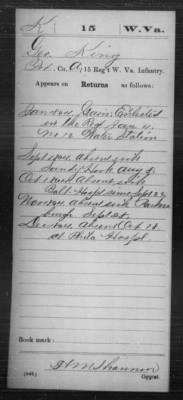 K 15 W.Va.
Geo. King
Co. A, 15 Reg't W. Va. Infantry.
Appears on Returns as follows:
Jan 1864 Gain Enlisted
in the Regt Jan 4.
No 12 Water Station
Sept 1864 absent sick
Sandy Hook Aug 5
Oct 1864 Absent sick
Hospl since Sept 22
Nov 1864 absent sick
since Sept 22.
Dec 1864 Absent Oct 18
at Phila Hospl.
Book mark:
H M Shannon
(546) Copyist.